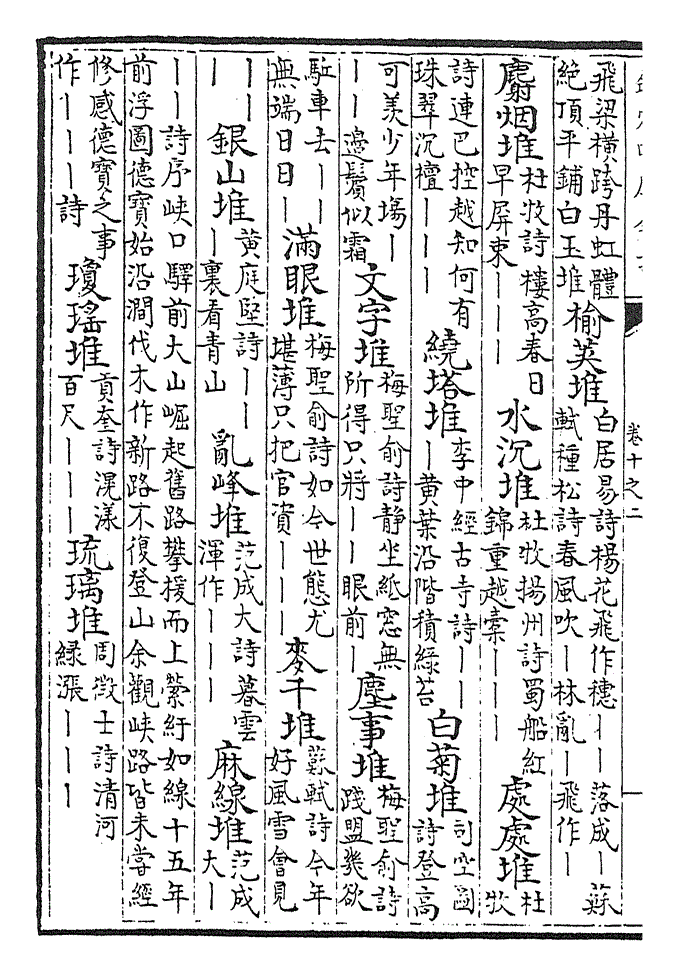 卷十之二
飛梁横跨丹虹體
絶頂平鋪白玉堆
榆英堆
白居易詩楊花飛作穗丨丨落成丨蘇
軾種松詩春風吹丨林亂丨飛作丨
麝烟堆
杜牧詩樓高春日
早屏束丨丨丨
水沉堆
杜牧揚州詩蜀船紅
錦重越橐丨丨丨
處處堆
杜
牧
詩連巴控越知何有
珠翠沉檀丨丨丨
繞塔堆
李中經古寺詩丨丨
丨黄葉沿階積緑苔
白菊堆
司空圖
詩登高
可羡少年塲丨
丨丨邊鬢似霜
文字堆
梅聖俞詩静坐紙窓無
所得只將丨丨眼前丨
塵事堆
梅聖俞詩
踐盟幾欲
駈車去丨丨
無端日日丨
滿眼堆
梅聖俞詩如今世態尤
堪薄只把官資丨丨丨
麥千堆
蘇軾詩今年
好風雪會見
丨丨
丨
銀山堆
黄庭堅詩丨丨
丨裏看青山
亂峰堆
范成大詩暮雲
渾作丨丨丨
麻線堆
范成
大丨
丨丨詩序峽口驛前大山崛起舊路攀援而上縈紆如線十五年
前浮圖德寶始沿澗伐木作新路不復登山余觀峽路皆未嘗經
修感德寶之事
作丨丨丨詩
瓊瑶堆
貢奎詩滉漾
百尺丨丨丨
琉璃堆
周徵士詩清河
緑漲丨丨丨